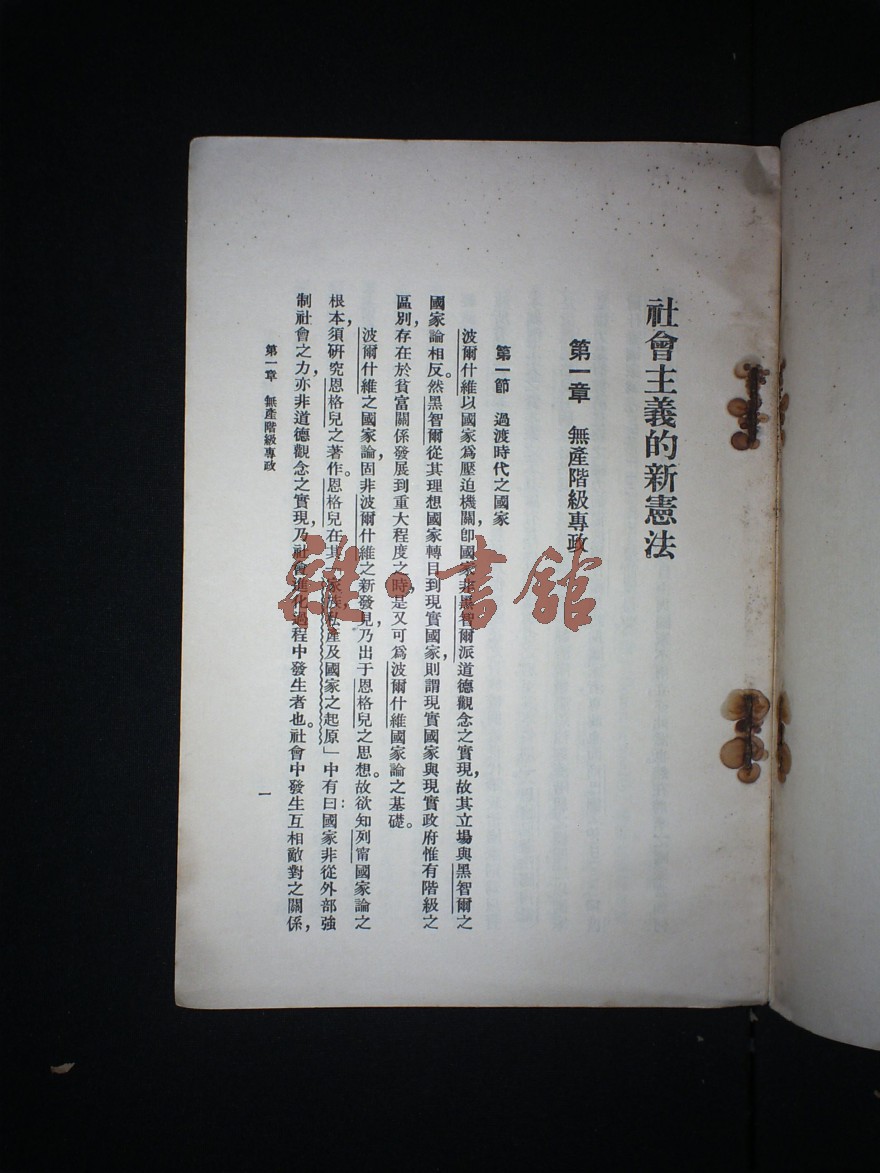 社會主義的新憲法
第一章 無產階級專政
第一節 過渡時代之國家
波爾什維以國家爲壓迫機關，卽國家非黑智爾派道德觀念之實現，故其立場與黑智爾之
國家論相反。然黑智爾從其理想國家轉目到現實國家，則謂現實國家與現實政府惟有階級之
區別，存在於貧富關係發展到重大程度之時，是又可爲波爾什維國家論之基礎。
波爾什維之國家論，固非波爾什維之新發見，乃出于恩格兒之思想。故欲知列甯國家論之
根本，須研究恩格兒之著作。恩格兒在其「家族私產及國家之起原」中有曰：國家非從外部強
制社會之力，亦非道德觀念之實現，乃社會進化過程中發生者也。社會中發生互相敵對之關係，
第一章 無產階級專政
一
雜·書館